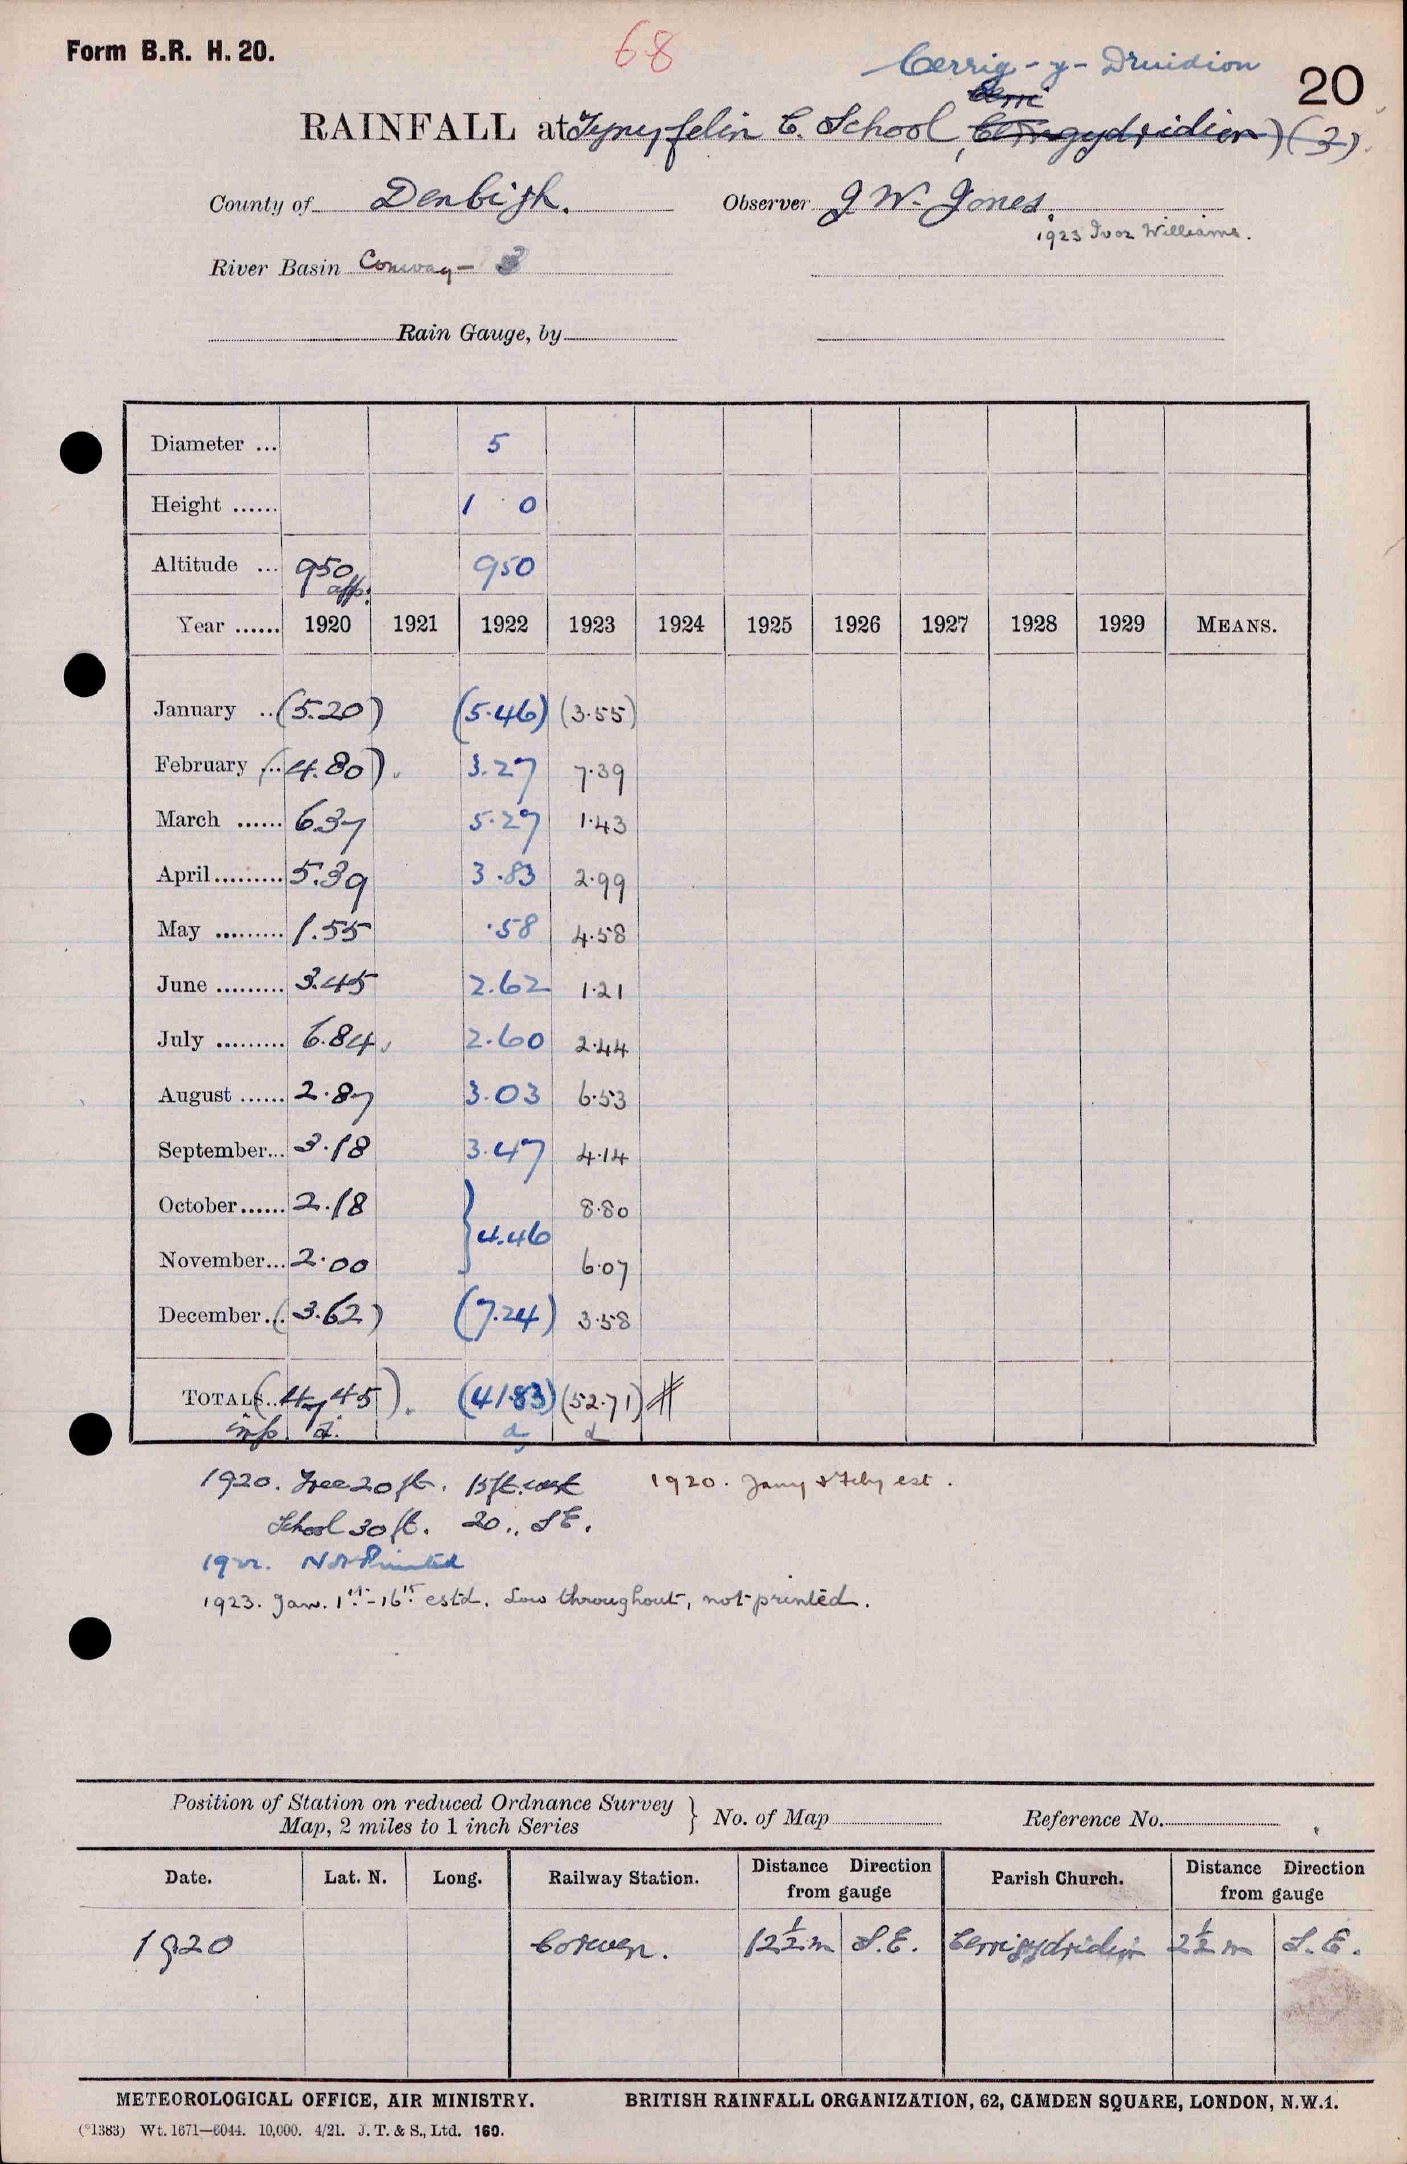 Form B.R. H. 20.
68
Cerrig-y-Druidion
20
RAINFALL at Tynyfelin C. School, Cerrigydruidion) (3).
County of Denbigh. Observer J W. Jones.
1923 Ivor Williams.
River Basin Conway - 3
Rain Gauge, by
Diameter ... 5
Height ...... 1 0
Altitude ... 950 app. 950
Year ...... 1920 1921 1922 1923 1924 1925 1926 1927 1928 1929 MEANS.
January .. (5.20) (5.46) (3.55)
February ... (4.80). 3.27 7.39
March ...... 6.37 5.27 1.43
April ......... 5.39 3.83 2.99
May ......... 1.55 .58 4.58
June ......... 3.45 2.62 1.21
July ......... 6.84 2.60 2.44
August ...... 2.87 3.03 6.53
September... 3.18 3.47 4.14
October...... 2.18 } 4.46 8.80
November... 2.00 6.07
December... (3.62) (7.24) 3.58
TOTALS.. (47.45). (41.83) (52.71) #
d. d d
1920. Tree 20 ft. 15 ft. west 1920. Jany & Feby est.
School 30 ft. 20 ,, S E.
1922. Not Printed
1923. Jan. 1st-16th estd. Low throughout, not printed.
Position of Station on reduced Ordnance Survey
Map, 2 miles to 1 inch Series } No. of Map Reference No.
Date. Lat. N. Long. Railway Station. Distance Direction from gauge Parish Church. Distance Direction from gauge
1920 Corwen. 12½ m S.E. Cerrigydruidion 2½ m S.E.
METEOROLOGICAL OFFICE, AIR MINISTRY. BRITISH RAINFALL ORGANIZATION, 62, CAMDEN SQUARE, LONDON, N.W.1.
(*1383) Wt. 1671—6044. 10,000. 4/21. J. T. & S., Ltd. 160.